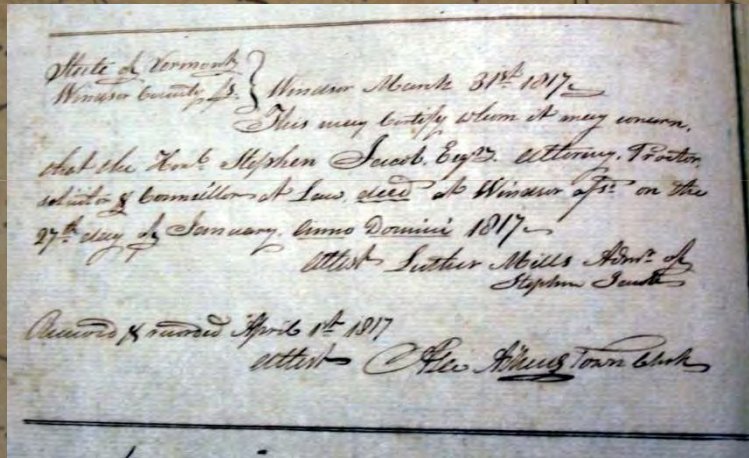 State of Vermont
Windsor County ss. } Windsor March 31st 1817
This may Certify whom it may concern,
that the Honl. Stephen Jacob, Esqr. Attorney, Proctor
solicitor & Councillor at Law, deed at Windsor afsd. on the
27th day of January, Anno Domini 1817
Attest Luther Mills Admr. of
Stephen Jacob
Received & recorded April 1st 1817
Attest Town Clerk